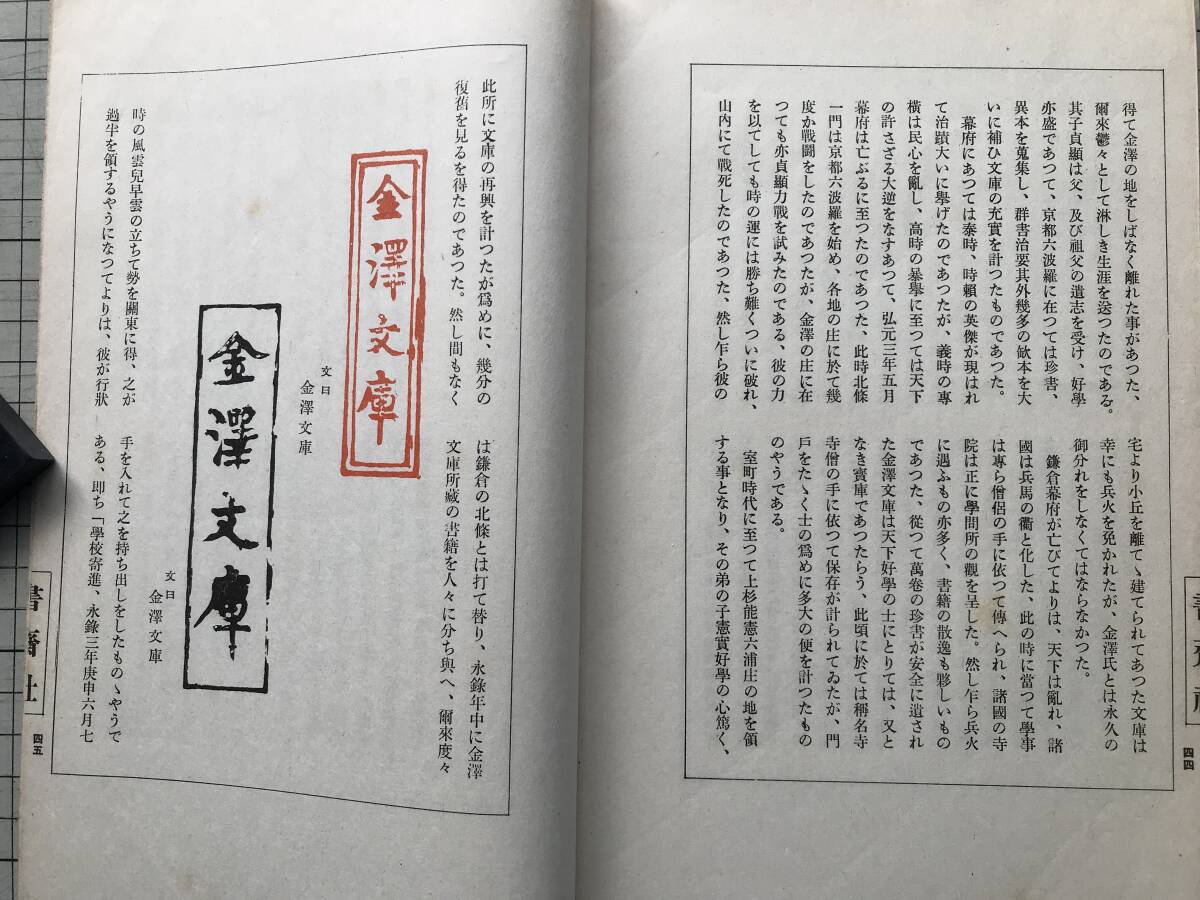 得て金澤の地をしばなく離れた事があつた、
爾來鬱々として淋しき生涯を送つたのである。
其子貞顯は父、及び祖父の遺志を受け、好學
亦盛であつて、京都六波羅に在つては珍書、
異本を蒐集し、群書治要其外幾多の欹本を大
いに補ひ文庫の充實を計つたものであつた。
幕府にあつては泰時、時賴の英傑が現はれ
て治蹟大いに擧げたのであつたが、義時の專
橫は民心を亂し、高時の暴擧に至つては天下
の許さざる大逆をなすあつて、弘元三年五月
幕府は亡ぶるに至つたのであつた、此時北條
一門は京都六波羅を始め、各地の庄に於て幾
度か戰鬪をしたのであつたが、金澤の庄に在
つても亦貞顯力戰を試みたのである、彼の力
を以てしても時の運には勝ち難くついに破れ、
山内にて戰死したのであつた、然し乍ら彼の
宅より小丘を離てゝ建てられてあつた文庫は
幸にも兵火を免かれたが、金澤氏とは永久の
御分れをしなくてはならなかつた。
鎌倉幕府が亡びてよりは、天下は亂れ、諸
國は兵馬の衢と化した、此の時に當つて學事
は專ら僧侶の手に依つて傳へられ、諸國の寺
院は正に學問所の觀を呈した。然し乍ら兵火
に遇ふもの亦多く、書籍の散逸も夥しいもの
であつた、從つて萬卷の珍書が安全に遺され
た金澤文庫は天下好學の士にとりては、又と
なき寳庫であつたらう、此頃に於ては稱名寺
寺僧の手に依つて保存が計られてゐたが、門
戶をたゝく士の爲めに多大の便を計つたもの
のやうである。
室町時代に至つて上杉能憲六浦庄の地を領
する事となり、その弟の子憲實好學の心篤く、
四四
此所に文庫の再興を計つたが爲めに、幾分の
復舊を見るを得たのであつた。然し間もなく
金澤文庫
文曰
金澤文庫
金澤文庫
文曰
金澤文庫
時の風雲兒早雲の立ちて勢を關東に得、之が
過半を領するやうになつてよりは、彼が行狀
は鎌倉の北條とは打て替り、永錄年中に金澤
文庫所藏の書籍を人々に分ち與へ、爾來度々
手を入れて之を持ち出しをしたものゝやうで
ある、卽ち「學校寄進、永錄三年庚申六月七
書齋社
四五